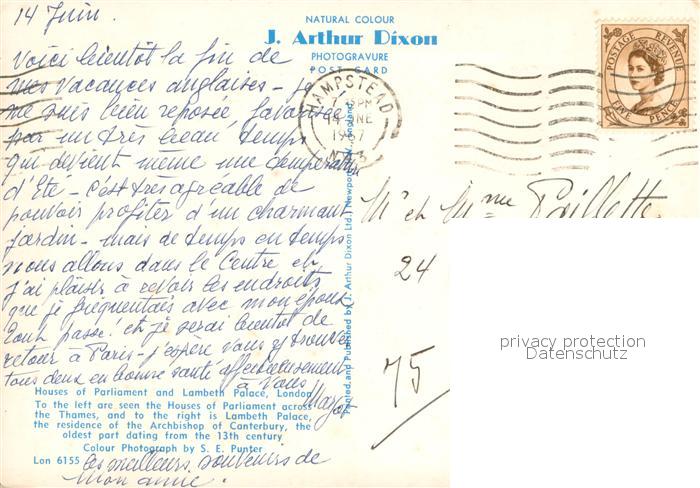 14 Juin.
NATURAL COLOUR
J. Arthur Dixon
PHOTOGRAVURE
POST CARD
Voici bientôt la fin de
mes vacances anglaises - je
me suis bien reposée, favorisée
par un très beau temps
qui devient meme une température
d'Eté - c'est très agréable de
pouvoir profiter d'un charmant
jardin - mais de temps en temps
nous allons dans le Centre et
j'ai plaisir à revoir les endroits
que je fréquentais avec mon époux
tout passe! et je serai bientot de
retour à Paris - j'espère vous y trouver
tous deux en bonne santé affectueusement
à Vous
HAMPSTEAD
PM
14 JNE
1967
N.W.3
POSTAGE REVENUE
FIVE PENCE
Mr et Mme
24
75
Printed and Published by J. Arthur Dixon Ltd., Newport, I.W., England.
privacy protection
Datenschutz
Houses of Parliament and Lambeth Palace, London
To the left are seen the Houses of Parliament across
the Thames, and to the right is Lambeth Palace,
the residence of the Archbishop of Canterbury, the
oldest part dating from the 13th century
Colour Photograph by S. E. Punter
Lon 6155
les meilleurs souvenirs de
mon amie.